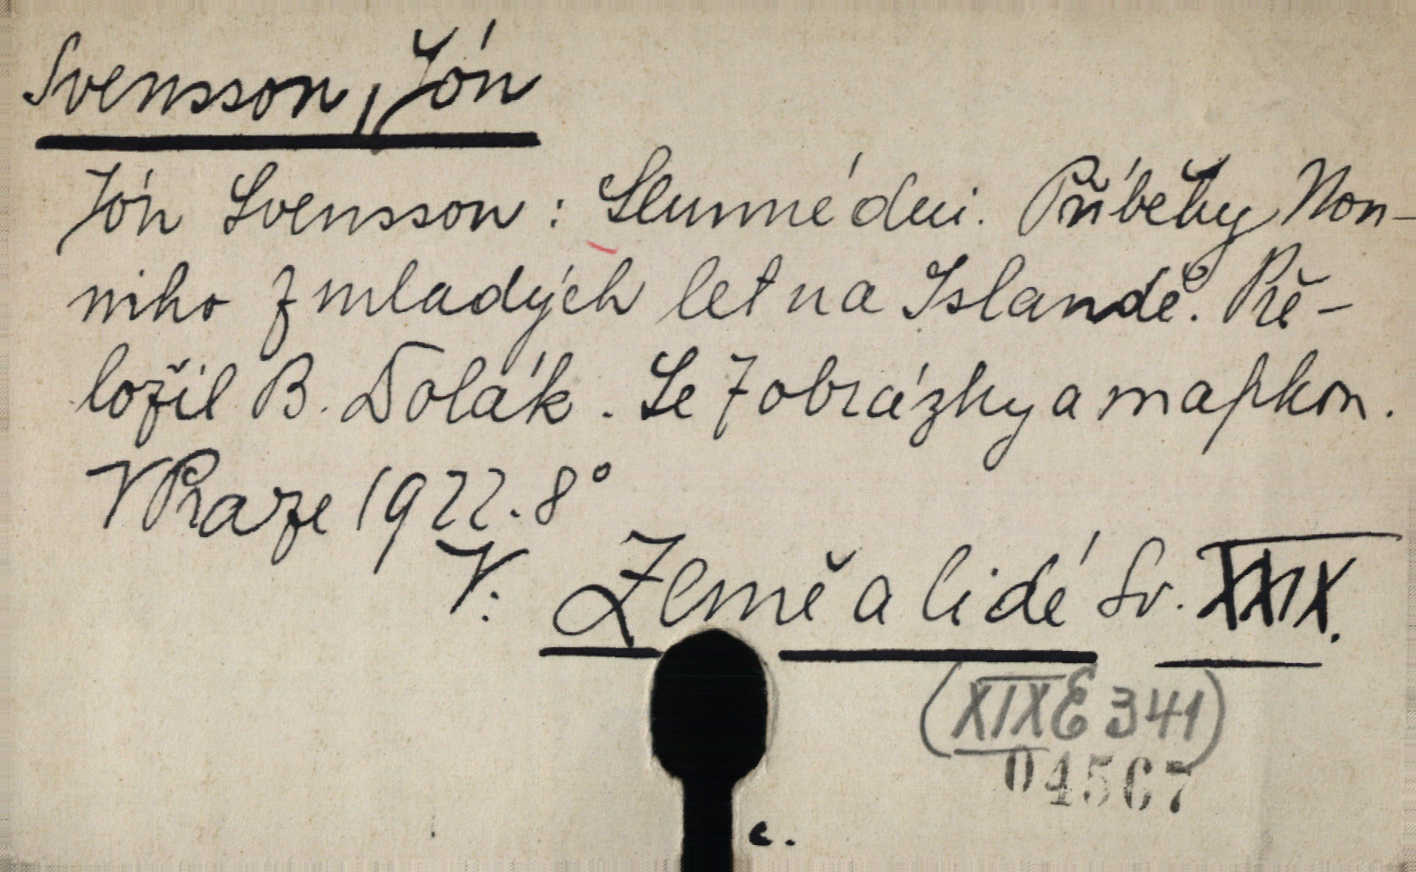 Svensson, Jón
Jón Svensson: Slunné dni. Příběhy Non-
niho z mladých let na Islandě. Pře-
ložil B. Dolák. Se 7 obrázky a mapkou.
V Praze 1922. 8°
V: Země a lidé Sv. XXIX.
(XIX E 341)
04567
c.